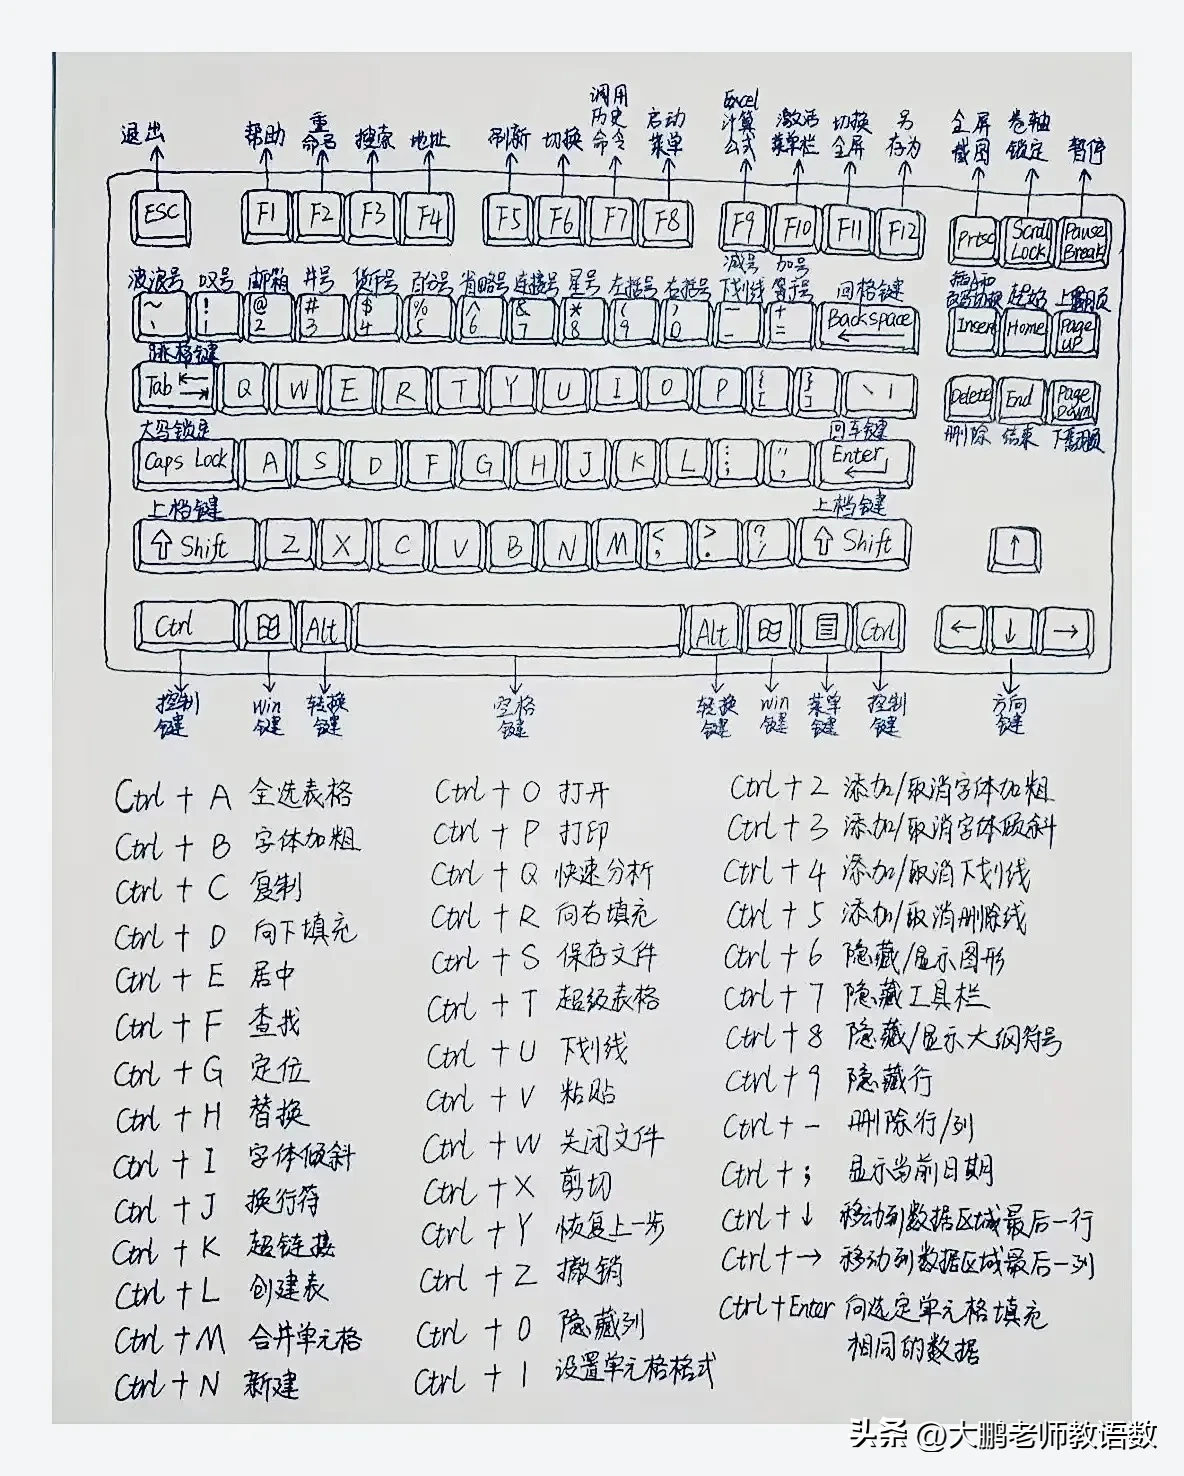 退出 帮助 重命名 搜索 地址 刷新 切换 调用历史命令 启动菜单 Excel计算公式 激活菜单栏 切换全屏 另存为 全屏截图 卷轴锁定 暂停
ESC F1 F2 F3 F4 F5 F6 F7 F8 F9 F10 F11 F12 Prtsc Scroll Lock Pause Break
波浪号 叹号 邮箱 井号 货币号 百分号 省略号 连接号 星号 左括号 右括号 减号 下划线 加号 等号 回格键 起始 上翻页
~ ` ! 1 @ 2 # 3 $ 4 % 5 ^ 6 & 7 * 8 ( 9 ) 0 — - + = Backspace ← Insert Home Page UP
跳格键
Tab Q W E R T Y U I O P { [ } ] \ | Delete End Page Down
大写锁定 回车键 删除 结束 下翻页
Caps Lock A S D F G H J K L : ; " ' Enter ↵
上档键 上档键
⇧ Shift Z X C V B N M < , > . ? / ⇧ Shift ↑
Ctrl Alt Alt Ctrl ← ↓ →
控制键 Win键 转换键 空格键 转换键 Win键 菜单键 控制键 方向键
Ctrl + A 全选表格
Ctrl + B 字体加粗
Ctrl + C 复制
Ctrl + D 向下填充
Ctrl + E 居中
Ctrl + F 查找
Ctrl + G 定位
Ctrl + H 替换
Ctrl + I 字体倾斜
Ctrl + J 换行符
Ctrl + K 超链接
Ctrl + L 创建表
Ctrl + M 合并单元格
Ctrl + N 新建
Ctrl + O 打开
Ctrl + P 打印
Ctrl + Q 快速分析
Ctrl + R 向右填充
Ctrl + S 保存文件
Ctrl + T 超级表格
Ctrl + U 下划线
Ctrl + V 粘贴
Ctrl + W 关闭文件
Ctrl + X 剪切
Ctrl + Y 恢复上一步
Ctrl + Z 撤销
Ctrl + 0 隐藏列
Ctrl + 1 设置单元格格式
Ctrl + 2 添加/取消字体加粗
Ctrl + 3 添加/取消字体倾斜
Ctrl + 4 添加/取消下划线
Ctrl + 5 添加/取消删除线
Ctrl + 6 隐藏/显示图形
Ctrl + 7 隐藏工具栏
Ctrl + 8 隐藏/显示大纲符号
Ctrl + 9 隐藏行
Ctrl + - 删除行/列
Ctrl + ; 显示当前日期
Ctrl + ↓ 移动到数据区域最后一行
Ctrl + → 移动到数据区域最后一列
Ctrl + Enter 向选定单元格填充
相同的数据
头条 @大鹏老师教语数